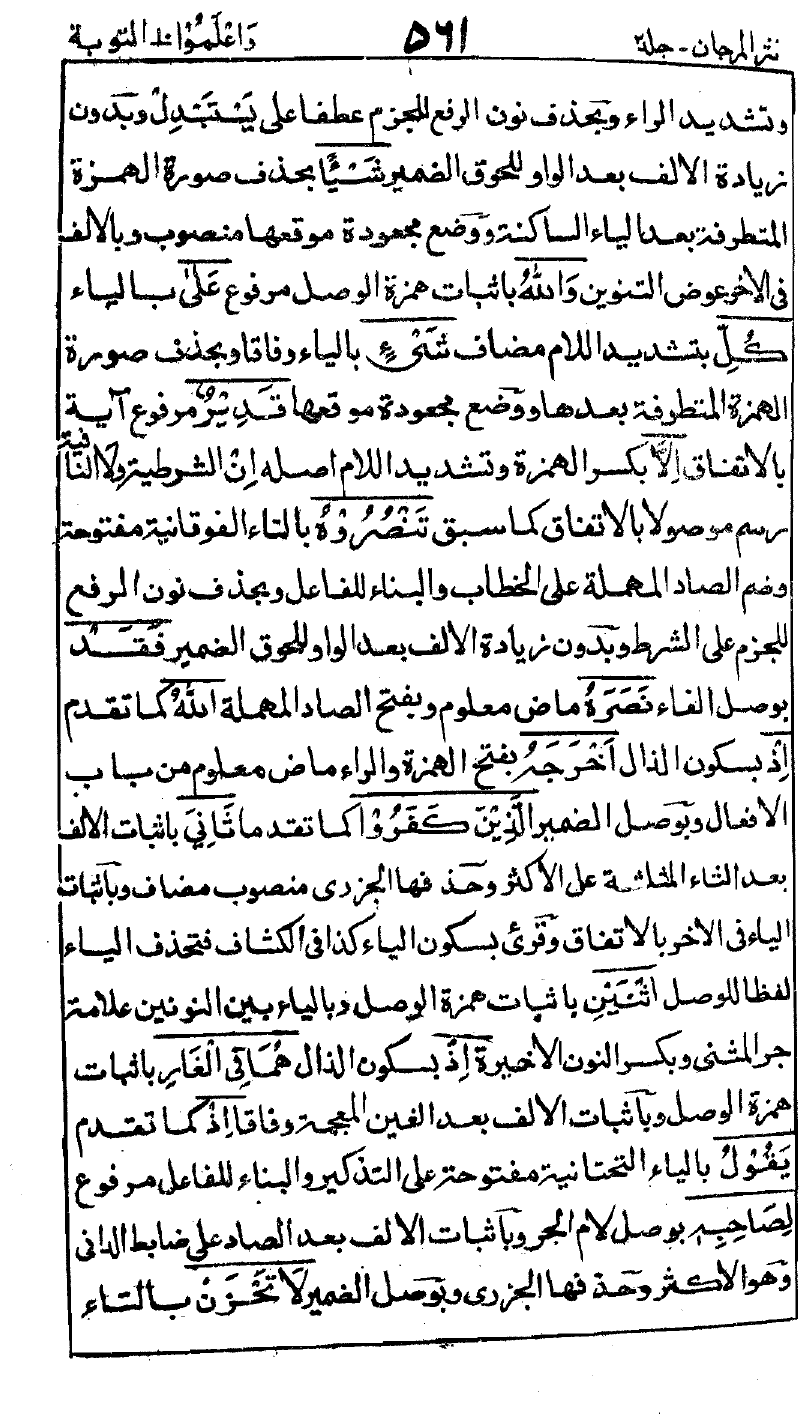 نثر المرجان - جلد٢ ٥٦١ وَاعْلَمُوْا ١٠ التوبة
وتشديد الراء وبحذف نون الرفع للجزم عطفا على يَسْتَبْدِلْ وبدون
زيادة الالف بعد الواو للحوق الضمير شَيْئًا بحذف صورة الهمزة
المتطرفة بعد الياء الساكنة ووضع مجعودة موقعها منصوب وبالالف
في الاخر عوض التنوين وَاللّٰهُ باثبات همزة الوصل مرفوع عَلٰى بالياء
كُلِّ بتشديد اللام مضاف شَيْءٍ بالياء وفاقا وبحذف صورة
الهمزة المتطرفة بعدها ووضع مجعودة موقعها قَدِيْرٌ مرفوع آية
بالاتفاق اِلَّا بكسر الهمزة وتشديد اللام اصله اِنْ الشرطية ولَا النافية
رسم موصولا بالاتفاق كما سبق تَنْصُرُوْهُ بالتاء الفوقانية مفتوحة
وضم الصاد المهملة على الخطاب والبناء للفاعل وبحذف نون الرفع
للجزم على الشرط وبدون زيادة الالف بعد الواو للحوق الضمير فَقَدْ
بوصل الفاء نَصَرَهُ ماض معلوم وبفتح الصاد المهملة اللّٰهُ كما تقدم
اِذْ بسكون الذال اَخْرَجَهُ بفتح الهمزة والراء ماض معلوم من باب
الافعال وبوصل الضمير الَّذِيْنَ كَفَرُوْا كما تقدما ثَانِيَ باثبات الالف
بعد الثاء المثلثة على الاكثر وحذفها الجزرى منصوب مضاف وباثبات
الياء في الاخر بالاتفاق وقرئ بسكون الياء كذا في الكشاف فتحذف الياء
لفظا للوصل اثْنَيْنِ باثبات همزة الوصل وبالياء بين النونين علامة
جر المثنى وبكسر النون الاخيرة اِذْ بسكون الذال هُمَا فِي الْغَارِ باثبات
همزة الوصل وباثبات الالف بعد الغين المعجمة وفاقا اِذْ كما تقدم
يَقُوْلُ بالياء التحتانية مفتوحة على التذكير والبناء للفاعل مرفوع
لِصَاحِبِهٖ بوصل لام الجر وباثبات الالف بعد الصاد على ضابط الدانى
وهو الاكثر وحذفها الجزرى وبوصل الضمير لَا تَحْزَنْ بالتاء